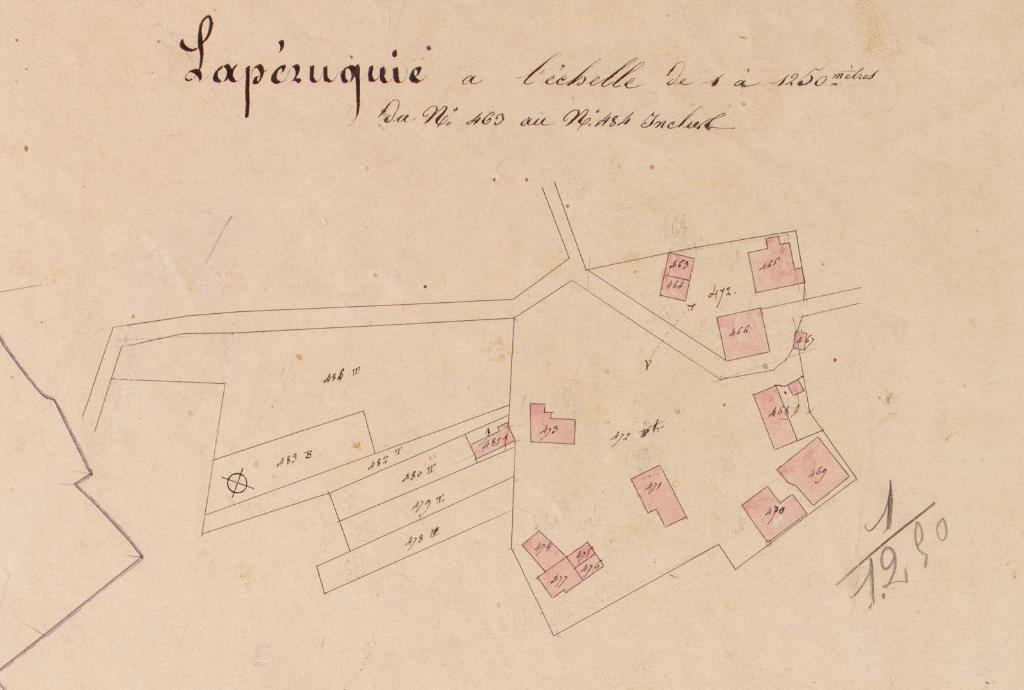 Lapéruquie a l'échelle de 1 à 1250 mètres
Du Nº 463 au Nº 484 Inclus
463
464
465
472.
466
467
484 T
468
473
472
483 B
482 T
481
480 T
471
469
479 T
470
478
474
475
476
477
1
1250